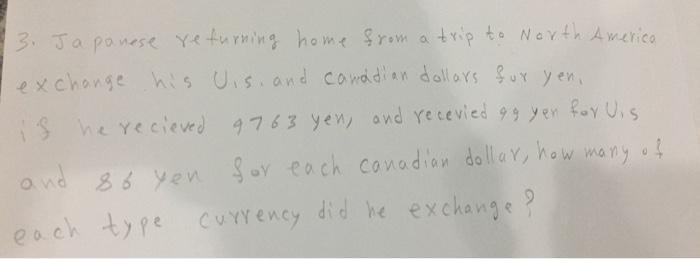 3. Japanese returning home from a trip to North America
exchange his U.s. and canadian dollars for yen.
if he recieved 9763 yen, and recevied 99 yen for U.s
and 86 yen for each canadian dollar, how many of
each type currency did he exchange?